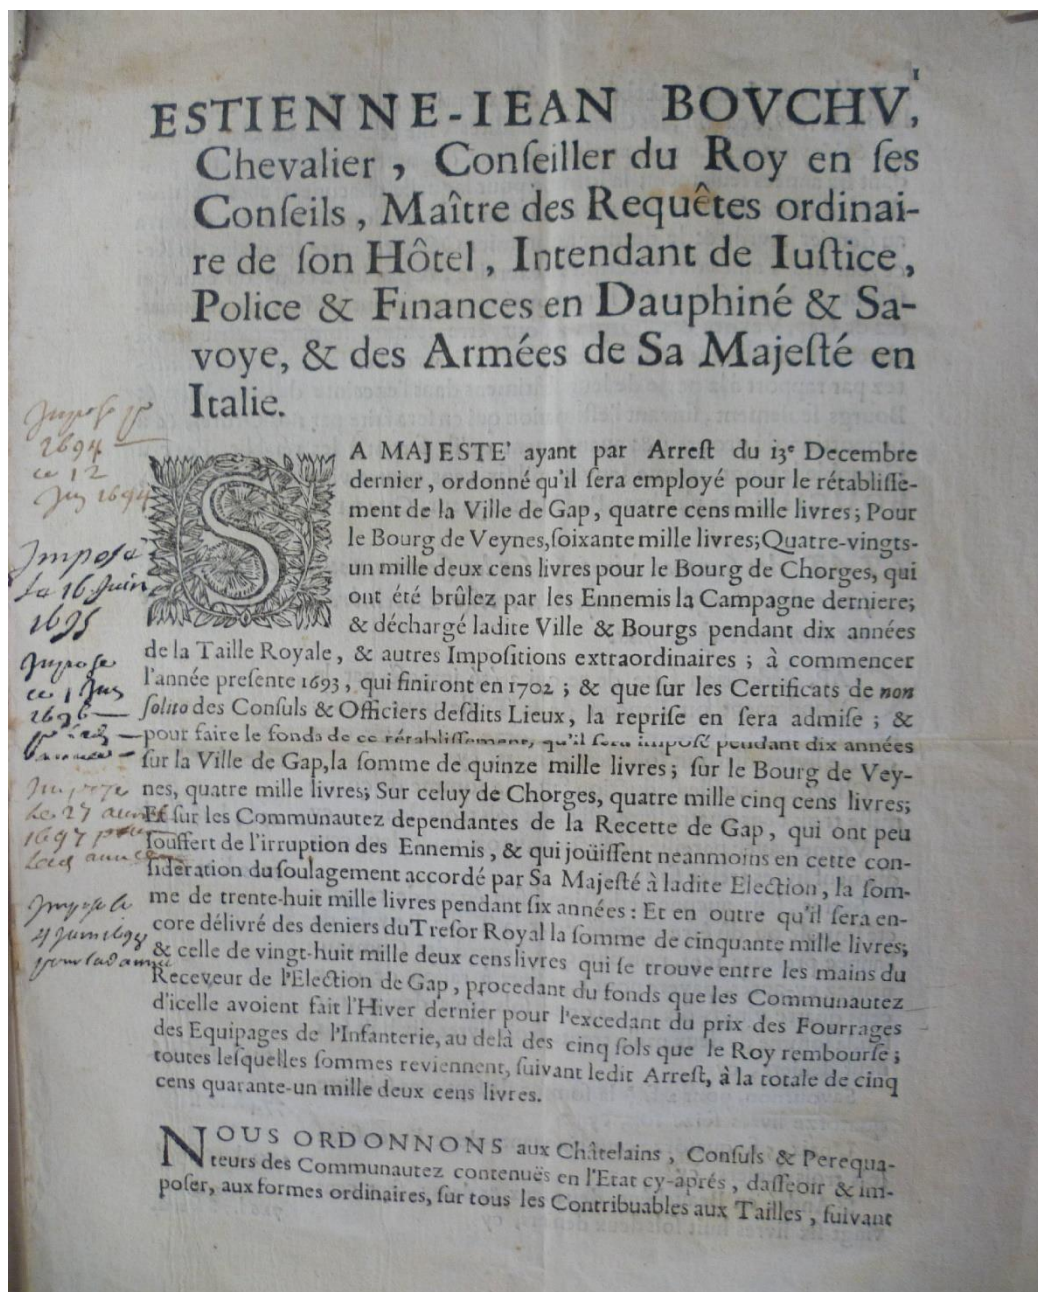 1
ESTIENNE-IEAN BOVCHV,
Chevalier, Conſeiller du Roy en ſes
Conſeils, Maître des Requêtes ordinai-
re de ſon Hôtel, Intendant de Iuſtice,
Police & Finances en Dauphiné & Sa-
voye, & des Armées de Sa Majeſté en
Italie.
SA MAJESTE' ayant par Arreſt du 13e Decembre
dernier, ordonné qu'il ſera employé pour le rétabliſſe-
ment de la Ville de Gap, quatre cens mille livres; Pour
le Bourg de Veynes, ſoixante mille livres; Quatre-vingts-
un mille deux cens livres pour le Bourg de Chorges, qui
ont été brûlez par les Ennemis la Campagne derniere;
& déchargé ladite Ville & Bourgs pendant dix années
de la Taille Royale, & autres Impoſitions extraordinaires; à commencer
l'année preſente 1693, qui finiront en 1702; & que ſur les Certificats de non
ſolito des Conſuls & Officiers deſdits Lieux, la repriſe en ſera admiſe; &
pour faire le fonds de ce rétabliſſement, qu'il ſera impoſé pendant dix années
ſur la Ville de Gap, la ſomme de quinze mille livres; ſur le Bourg de Vey-
nes, quatre mille livres; Sur celuy de Chorges, quatre mille cinq cens livres;
Et ſur les Communautez dependantes de la Recette de Gap, qui ont peu
ſouffert de l'irruption des Ennemis, & qui joüiſſent neanmoins en cette con-
ſideration du ſoulagement accordé par Sa Majeſté à ladite Election, la ſom-
me de trente-huit mille livres pendant ſix années: Et en outre qu'il ſera en-
core délivré des deniers du Treſor Royal la ſomme de cinquante mille livres;
& celle de vingt-huit mille deux cens livres qui ſe trouve entre les mains du
Receveur de l'Election de Gap, procedant du fonds que les Communautez
d'icelle avoient fait l'Hiver dernier pour l'excedant du prix des Fourrages
des Equipages de l'Infanterie, au delà des cinq ſols que le Roy rembourſe;
toutes leſquelles ſommes reviennent, ſuivant ledit Arreſt, à la totale de cinq
cens quarante-un mille deux cens livres.
NOUS ORDONNONS aux Châtelains, Conſuls & Perequa-
teurs des Communautez contenuës en l'Etat cy-aprés, d'aſſeoir & im-
poſer, aux formes ordinaires, ſur tous les Contribuables aux Tailles, ſuivant
Impose
1694
ce 12
1694
Impose
Le 16 Juin
1695
Impose
ce 1
1696
Impose
Le 27
1697 pour
Impose le
4 Juin 1698